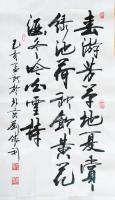 春游芳草地夏赏
绿池荷秋饮黄花
酒冬吟白雪诗
己亥 於北京